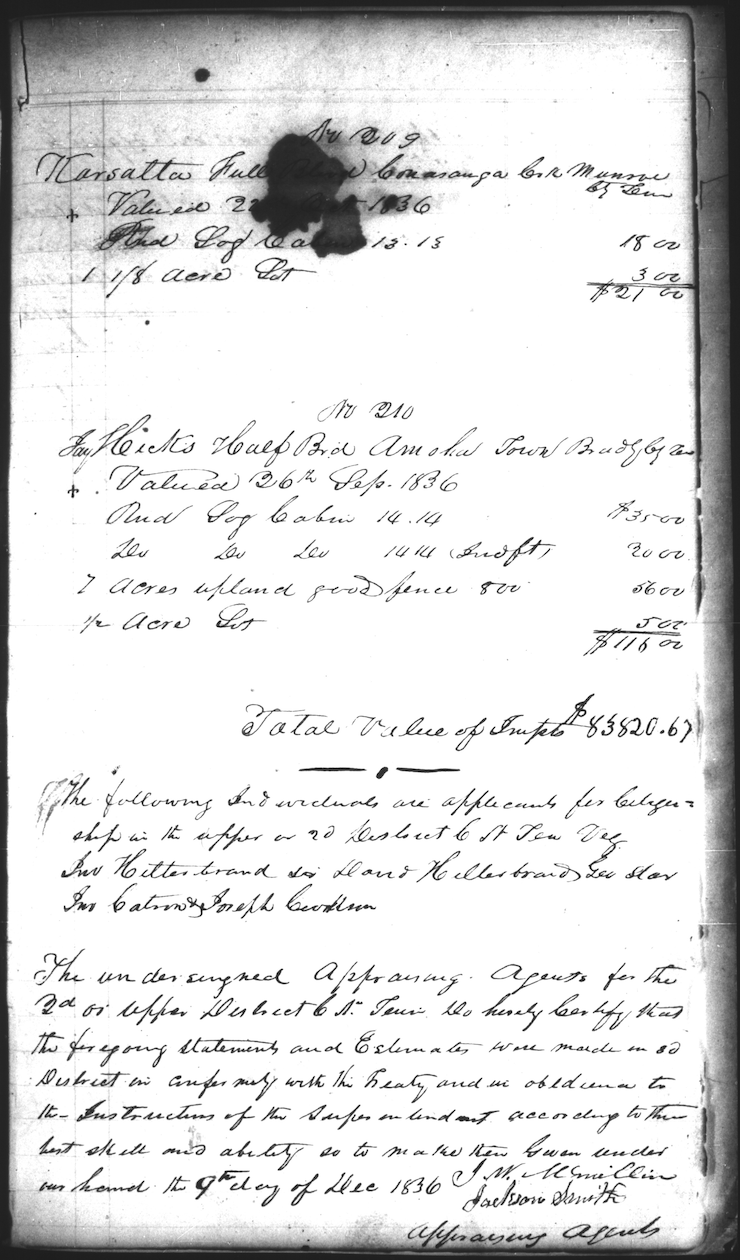 No 209
Karsatta Full Blood Conasauga Crk Munroe
Cy Ten
+ Valued 22 1836
Rnd Log Cabin 13.13 18 00
1 1/8 acre Lot 3 00
$21 00
No 210
Jay Hicks Half Brd Amoha Town Bradly Cy Ten
+ Valued 26th Sep. 1836
Rnd Log Cabin 14.14 $35 00
Do Do Do 14 14 (Indft) 20 00
7 acres upland good fence 800 56 00
1/2 Acre Lot 5 00
$116 00
Total Value of Impts $83820.67
The following Individuals are applicants for Citizen=
ship in the upper or 2d District C N Ten Viz
Jno Hilterbrand Sr David Hilterbrand Geo Star
Jno Catron & Joseph
The undersigned Appraising Agents for the
2d or upper District C N. Tenn. Do hereby Certify that
the foregoing statements and Estimates were made in sd
District in confermety with the Treaty and in obedience to
the Instructions of the Superentendent according to their
best skill and ability so to make them Given under
our hand the 9th day of Dec 1836 J. W. McMillin
Jackson Smith
Appraising Agents